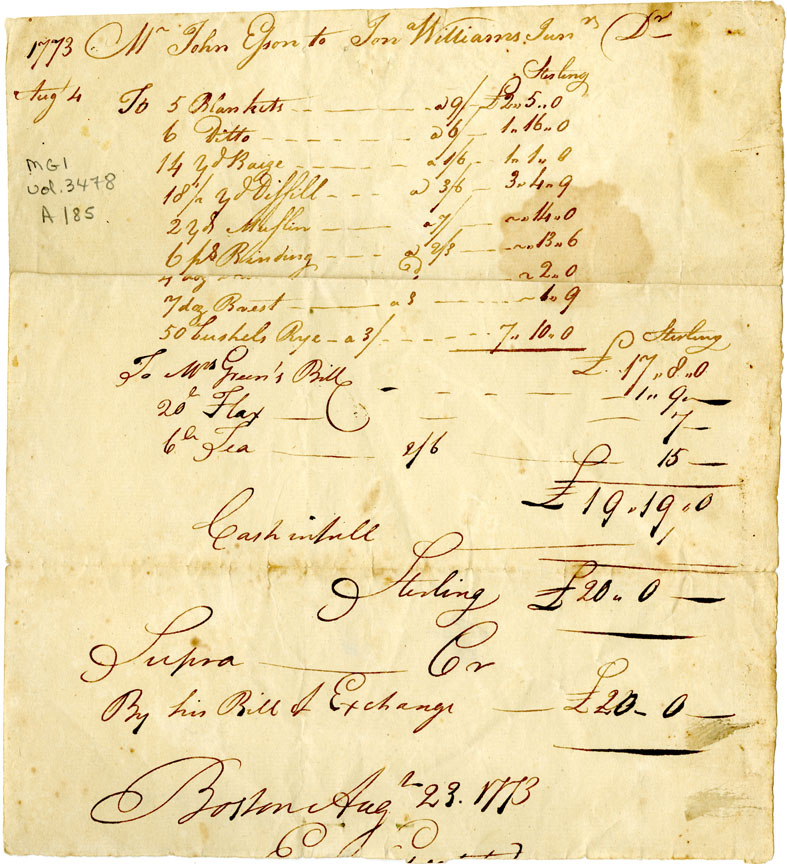 1773 Mr John Eson to Jona Williams Junr Dr
Sterling
Augt 4 To 5 Blankets a 9/ £2„5„0
6 Ditto a 6/ 1„16„0
14 yd Baize a 1/6 1„1„0
18½ yd Diffill a 3/6 3„4„9
2 yd Muslin a 7/ „14„0
6 ps Binding a 2/3 „13„6
„2„0
7 doz Brest a 3 1„9
50 bushels Rye a 3/ 7„10„0
Sterling
£17„8„0
To Mrs Green's Bill 1„9„
20 lb Flax 7
6 lb Tea 2/6 15
£19„19„0
Cash in full 1
Sterling £20„0
Supra Cr
By his Bill of Exchange £20-0
Boston Augt 23. 1773
MG1
vol.3478
A185